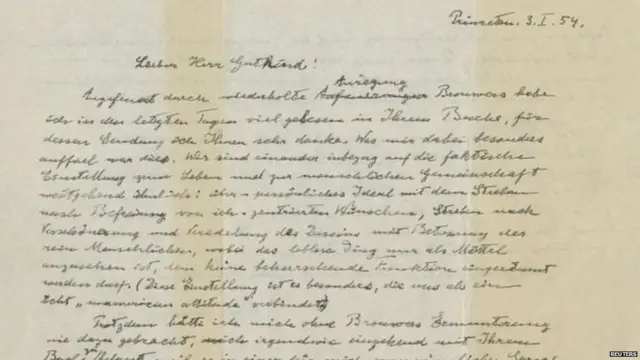 Princeton. 3. I. 54.
Lieber Herr Gutkind!
Anregung
Angefeuert durch wiederholte Brouwers habe
ich in den letzten Tagen viel gelesen in Ihrem Buche, für
dessen Sendung ich Ihnen sehr danke. Was mir dabei besonders
auffiel war dies. Wir sind einander inbezug auf die faktische
Einstellung zum Leben und zur menschlichen Gemeinschaft
weitgehend ähnlich: über-persönliches Ideal mit dem Streben
nach Befreiung von ich-zentrierten Wünschen, Streben nach
Verschönerung und Veredelung des Daseins mit Betonung des
rein Menschlichen, wobei das leblose Ding nur als Mittel
anzusehen ist, dem keine beherrschende Funktion eingeräumt
werden darf. (Diese Einstellung ist es besonders, die uns als ein
echt „unamerican attitude" verbindet)
Trotzdem hätte ich mich ohne Brouwers Ermunterung
nie dazu gebracht, mich irgendwie eingehend mit Ihrem
weil es in einer für mich
REUTERS